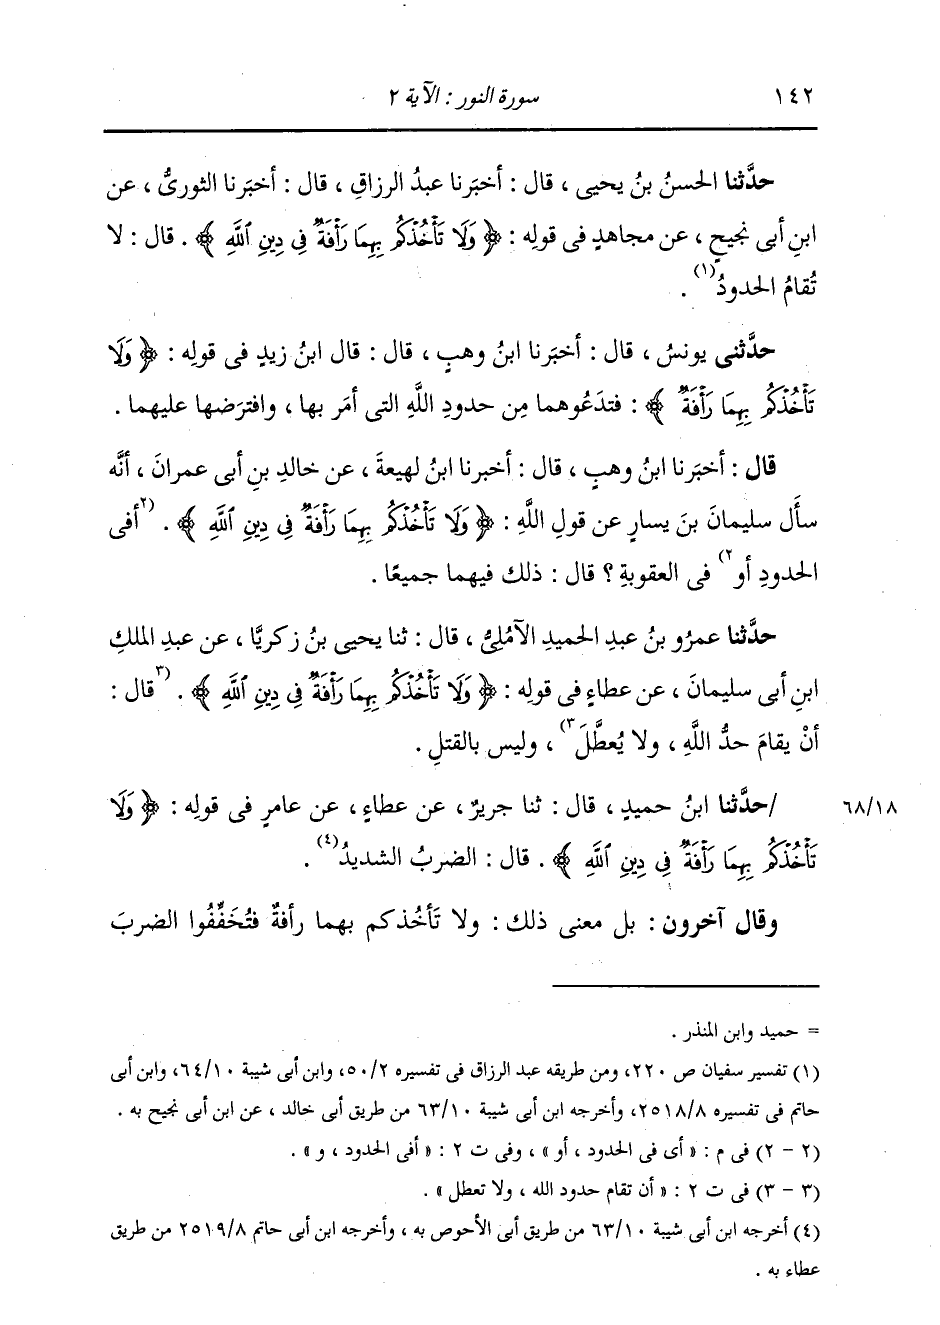 ١٤٢ سورة النور : الآية ٢
حدَّثنا الحسنُ بنُ يحيى ، قال : أخبَرنا عبدُ الرزاقِ ، قال : أخبَرنا الثورىُّ ، عن
ابنِ أبى نجيحٍ ، عن مجاهدٍ فى قولِه : ﴿ وَلَا تَأْخُذْكُم بِهِمَا رَأْفَةٌ فِى دِينِ ٱللَّهِ ﴾ . قال : لا
تُقامُ الحدودُ(١) .
حدَّثنى يونسُ ، قال : أخبَرنا ابنُ وهبٍ ، قال : قال ابنُ زيدٍ فى قولِه : ﴿ وَلَا
تَأْخُذْكُم بِهِمَا رَأْفَةٌ ﴾ : فتدَعُوهما مِن حدودِ اللَّهِ التى أمَر بها ، وافترَضها عليهما .
قال : أخبَرنا ابنُ وهبٍ ، قال : أخبرنا ابنُ لهيعةَ ، عن خالدِ بنِ أبى عمرانَ ، أنَّه
سأَل سليمانَ بنَ يسارٍ عن قولِ اللَّهِ : ﴿ وَلَا تَأْخُذْكُم بِهِمَا رَأْفَةٌ فِى دِينِ ٱللَّهِ ﴾ . (٢أفى
الحدودِ أو٢) فى العقوبةِ ؟ قال : ذلك فيهما جميعًا .
حدَّثنا عمرُو بنُ عبدِ الحميدِ الآمُلِىُّ ، قال : ثنا يحيى بنُ زكريَّا ، عن عبدِ الملكِ
ابنِ أبى سليمانَ ، عن عطاءٍ فى قولِه : ﴿ وَلَا تَأْخُذْكُم بِهِمَا رَأْفَةٌ فِى دِينِ ٱللَّهِ ﴾ . (٣قال :
أنْ يقامَ حدُّ اللَّهِ ، ولا يُعطَّلَ٣) ، وليس بالقتلِ .
٦٨/١٨ /حدَّثنا ابنُ حميدٍ ، قال : ثنا جريرٌ ، عن عطاءٍ ، عن عامرٍ فى قولِه : ﴿ وَلَا
تَأْخُذْكُم بِهِمَا رَأْفَةٌ فِى دِينِ ٱللَّهِ ﴾ . قال : الضربُ الشديدُ(٤) .
وقال آخرون : بل معنى ذلك : ولا تَأخُذكم بهما رأفةٌ فتُخَفِّفُوا الضربَ
= حميد وابن المنذر .
(١) تفسير سفيان ص ٢٢٠، ومن طريقه عبد الرزاق فى تفسيره ٥٠/٢، وابن أبى شيبة ٦٤/١٠، وابن أبى
حاتم فى تفسيره ٢٥١٨/٨، وأخرجه ابن أبى شيبة ٦٣/١٠ من طريق أبى خالد ، عن ابن أبى نجيح به .
(٢ - ٢) فى م : « أى فى الحدود ، أو » ، وفى ت ٢ : « أفى الحدود ، و » .
(٣ - ٣) فى ت ٢ : « أن تقام حدود الله ، ولا تعطل » .
(٤) أخرجه ابن أبى شيبة ٦٣/١٠ من طريق أبى الأحوص به ، وأخرجه ابن أبى حاتم ٢٥١٩/٨ من طريق
عطاء به .